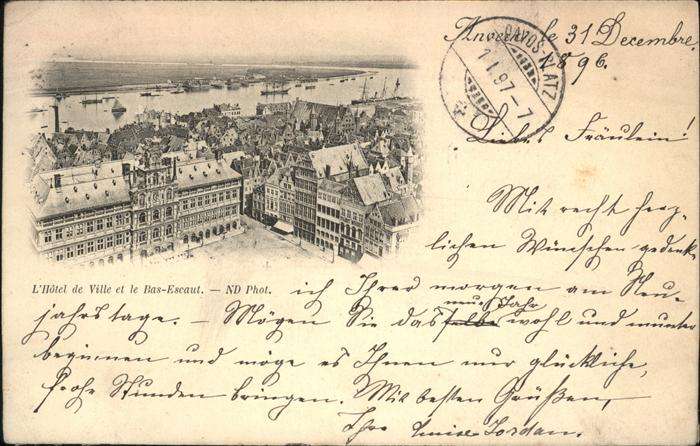 Anvers le 31 Decembre
1896.
DAVOS-PLATZ
1.I.97-7
Liebes Fräulein!
Mit recht herz-
lichen Wünschen gedenke
L'Hôtel de Ville et le Bas-Escaut. — ND Phot.
ich Ihrer morgen am Neu-
jahrstage. — Mögen Sie das
neue Jahr
wohl und munter
beginnen und möge es Ihnen nur glückliche,
frohe Stunden bringen. Mit besten Grüßen,
Ihre Luise Jordan.